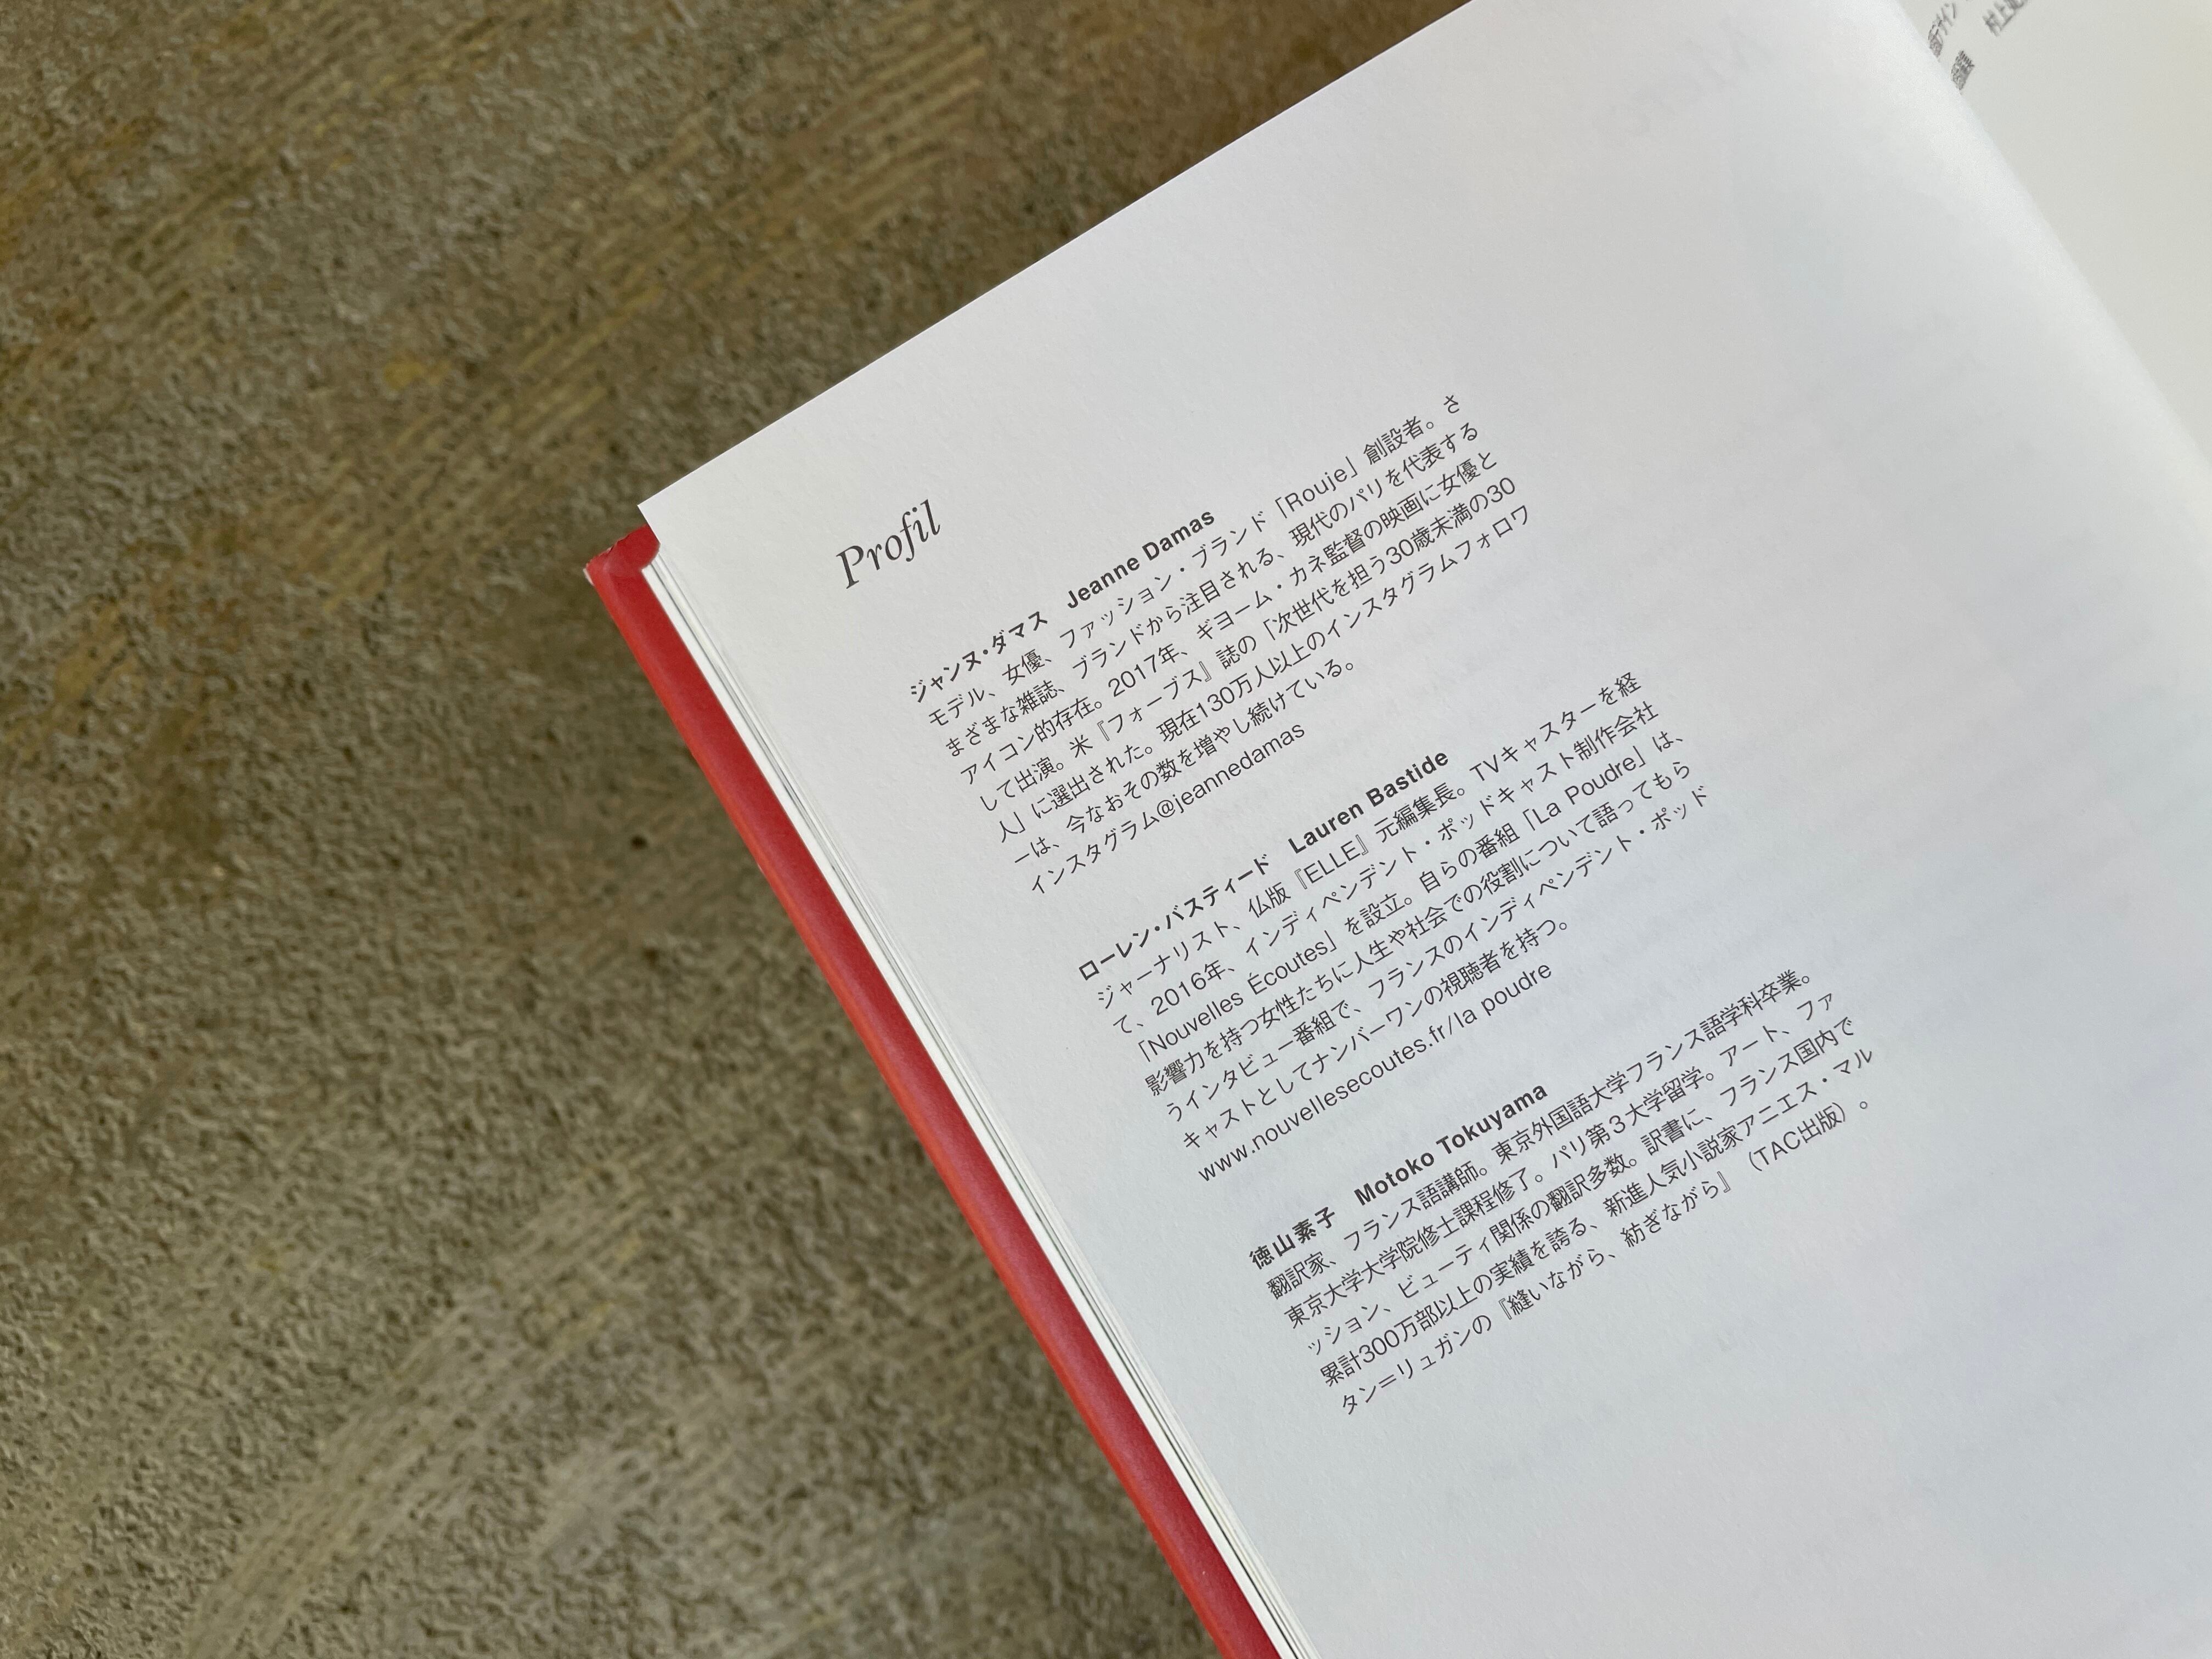 Profil
ジャンヌ・ダマス　Jeanne Damas
モデル、女優、ファッション・ブランド「Rouje」創設者。さ
まざまな雑誌、ブランドから注目される、現代のパリを代表する
アイコン的存在。2017年、ギヨーム・カネ監督の映画に女優と
して出演。米『フォーブス』誌の「次世代を担う30歳未満の30
人」に選出された。現在130万人以上のインスタグラムフォロワ
ーは、今なおその数を増やし続けている。
インスタグラム@jeannedamas
ローレン・バスティード　Lauren Bastide
ジャーナリスト、仏版『ELLE』元編集長。TVキャスターを経
て、2016年、インディペンデント・ポッドキャスト制作会社
「Nouvelles Écoutes」を設立。自らの番組「La Poudre」は、
影響力を持つ女性たちに人生や社会での役割について語ってもら
うインタビュー番組で、フランスのインディペンデント・ポッド
キャストとしてナンバーワンの視聴者を持つ。
www.nouvellesecoutes.fr/la poudre
徳山素子　Motoko Tokuyama
翻訳家、フランス語講師。東京外国語大学フランス語学科卒業。
東京大学大学院修士課程修了。パリ第3大学留学。アート、ファ
ッション、ビューティ関係の翻訳多数。訳書に、フランス国内で
累計300万部以上の実績を誇る、新進人気小説家アニエス・マル
タン=リュガンの『縫いながら、紡ぎながら』（TAC出版）。
デザイン
編集　村上